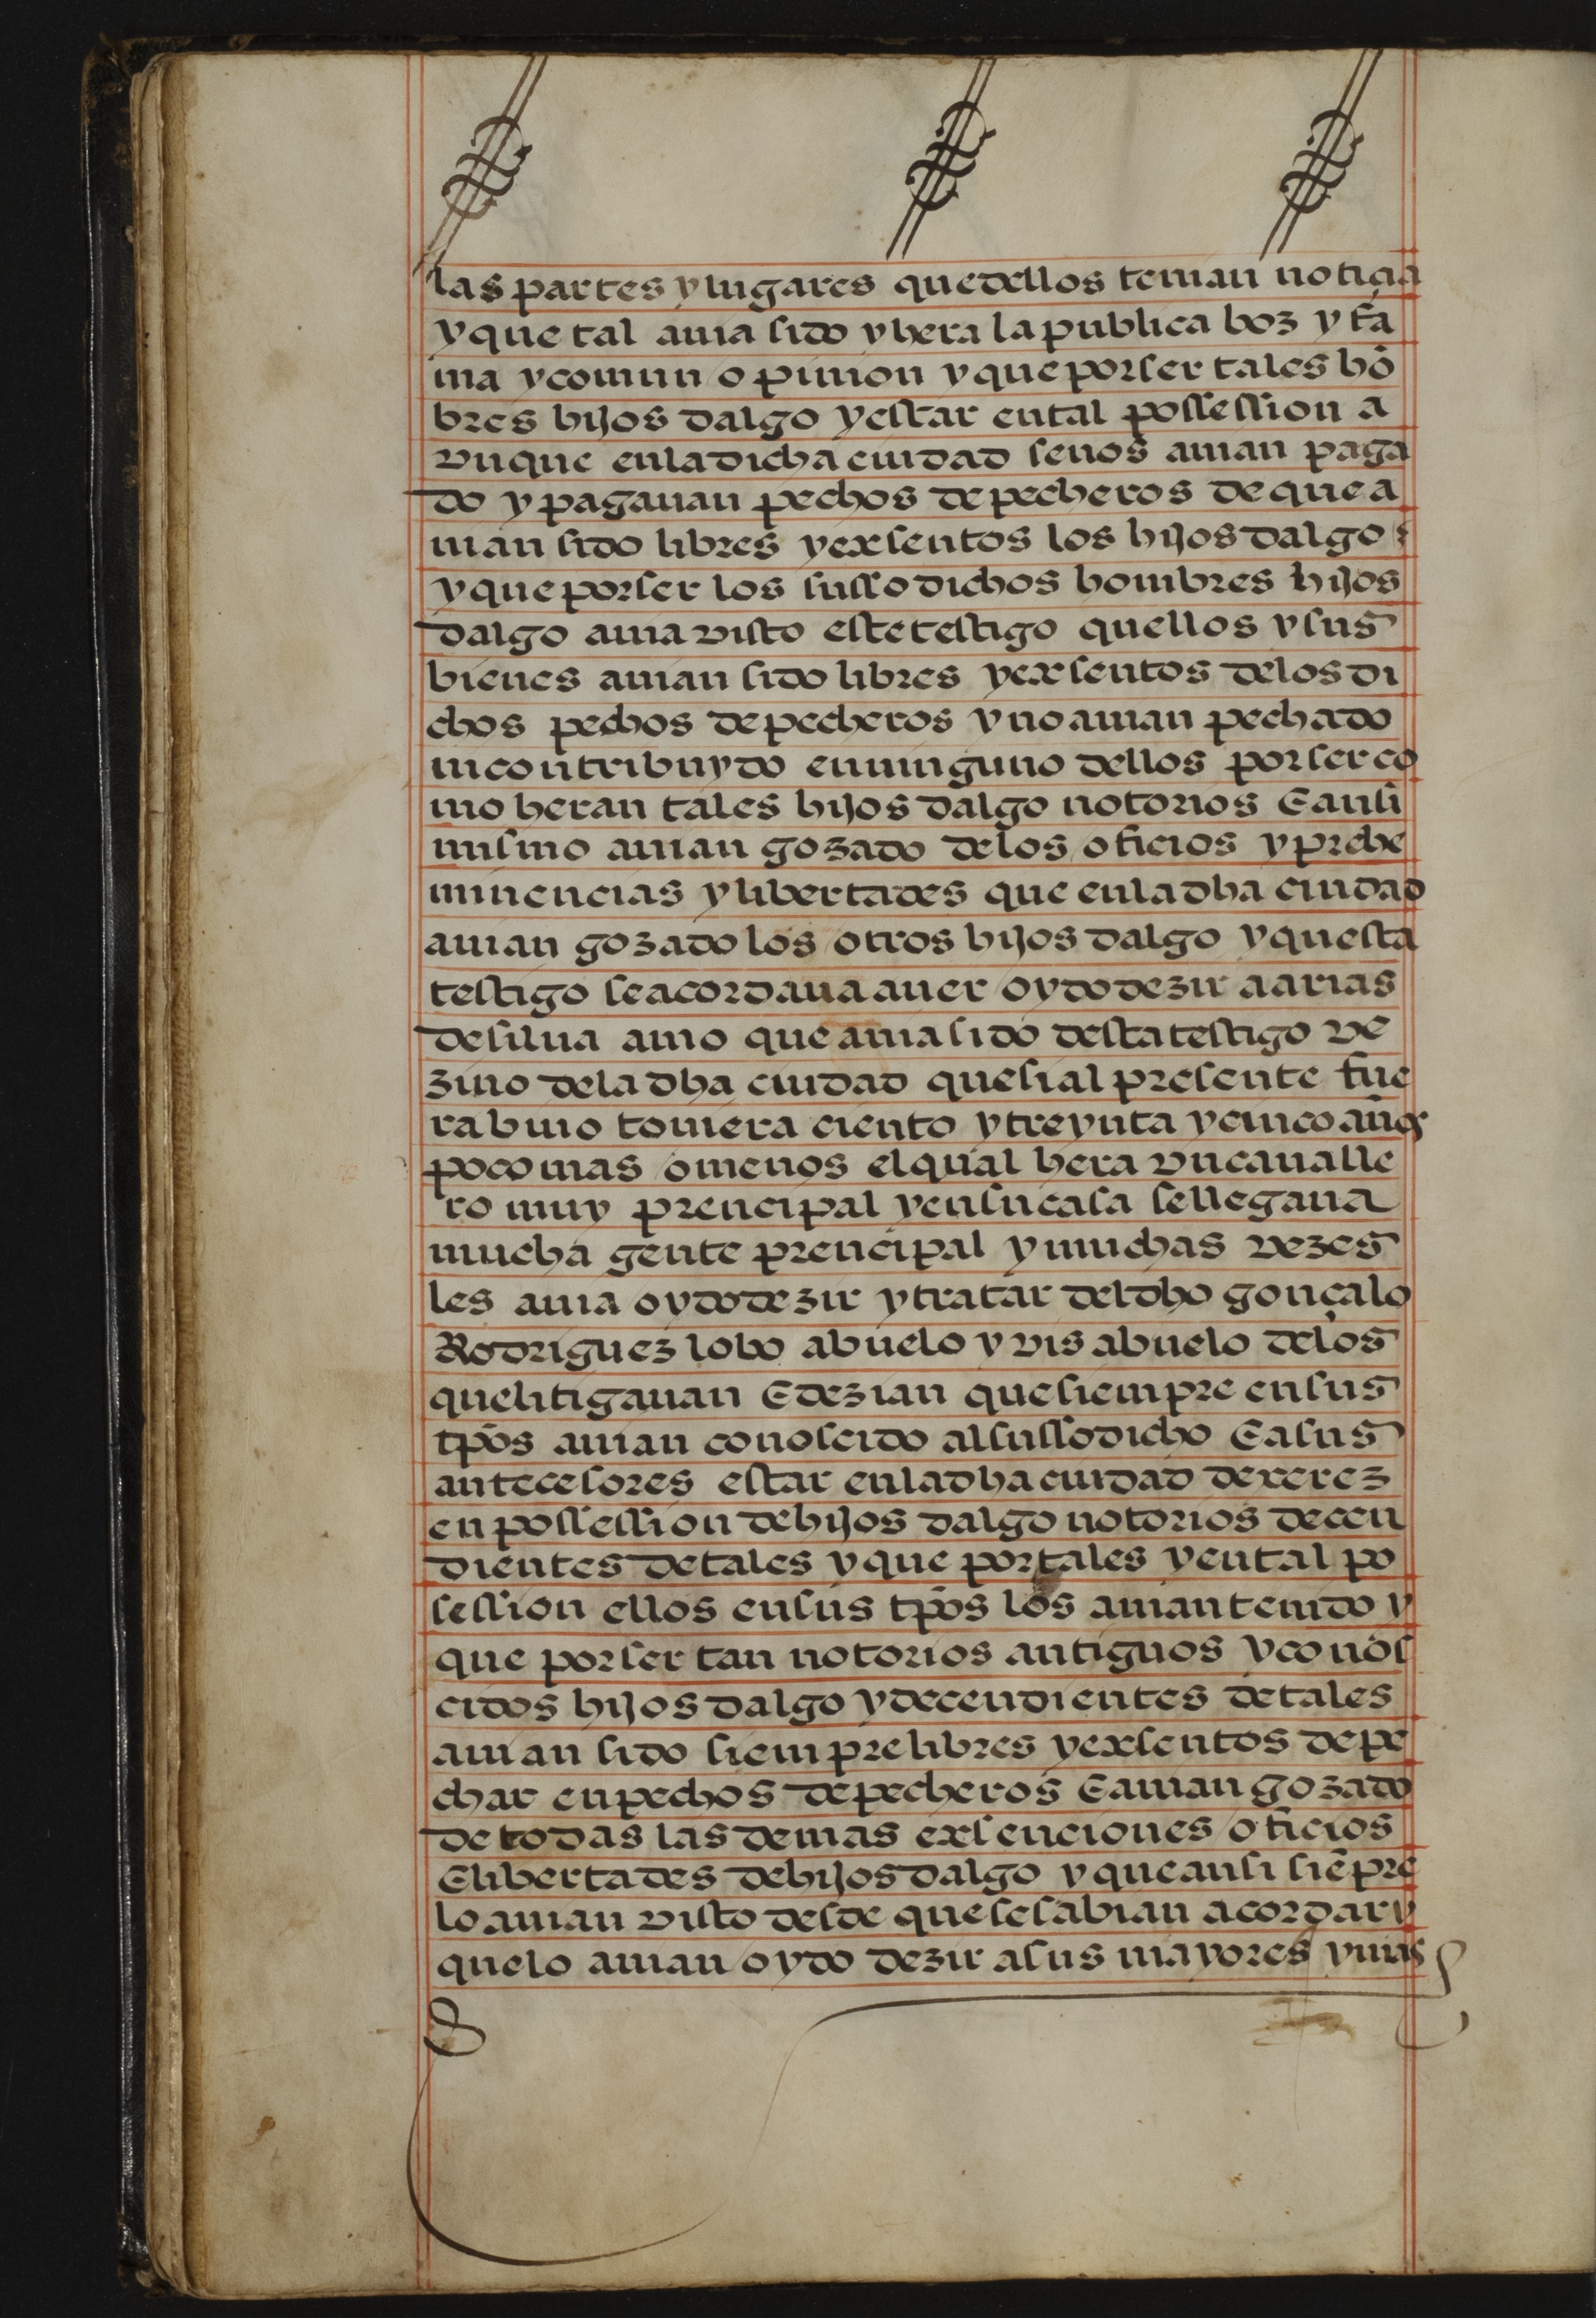 las partes y lugares que dellos tenian noticia
y que tal auia sido y hera la publica boz y fa
ma y comun opinion y que por ser tales hõ
bres hijos dalgo y estar en tal possession a
vnque en la dicha ciudad se nos auian paga
do y pagauan pechos de pecheros de que a
uian sido libres y exsentos los hijos dalgo
y que por ser los sussodichos hombres hijos
dalgo auia visto este testigo quellos y sus
bienes auian sido libres y exsentos de los di
chos pechos de pecheros y no auian pechado
ni contribuydo en ninguno dellos por ser co
mo heran tales hijos dalgo notorios E ansi
mismo auian gozado de los oficios y prehe
minencias y libertades que en la dha ciudad
auian gozado los otros hijos dalgo y questa
testigo se acordaua auer oydo dezir a arias
de silua amo que auia sido desta testigo ve
zino de la dha ciudad que si al presente fue
ra biuo touiera ciento y treynta y cinco años
poco mas o menos el qual hera vn caualle
ro muy prencipal y en su casa se llegaua
mucha gente prencipal y muchas vezes
les auia oydo dezir y tratar del dho gonçalo
Rodriguez lobo abuelo y visabuelo de los
que litigauan E dezian que siempre en sus
tpõs auian conoscido al sussodicho E a sus
antecesores estar en la dha ciudad de xerez
en possession de hijos dalgo notorios decen
dientes de tales y que por tales y en tal po
session ellos en sus tpõs los auian tenido y
que por ser tan notorios antiguos y conos
cidos hijos dalgo y decendientes de tales
auian sido siempre libres y exsentos de pe
char en pechos de pecheros E auian gozado
de todas las demas exsenciones oficios
E libertades de hijos dalgo y que ansi siẽpre
lo auian visto desde que se sabian acordar y
que lo auian oydo dezir a sus mayores y mas